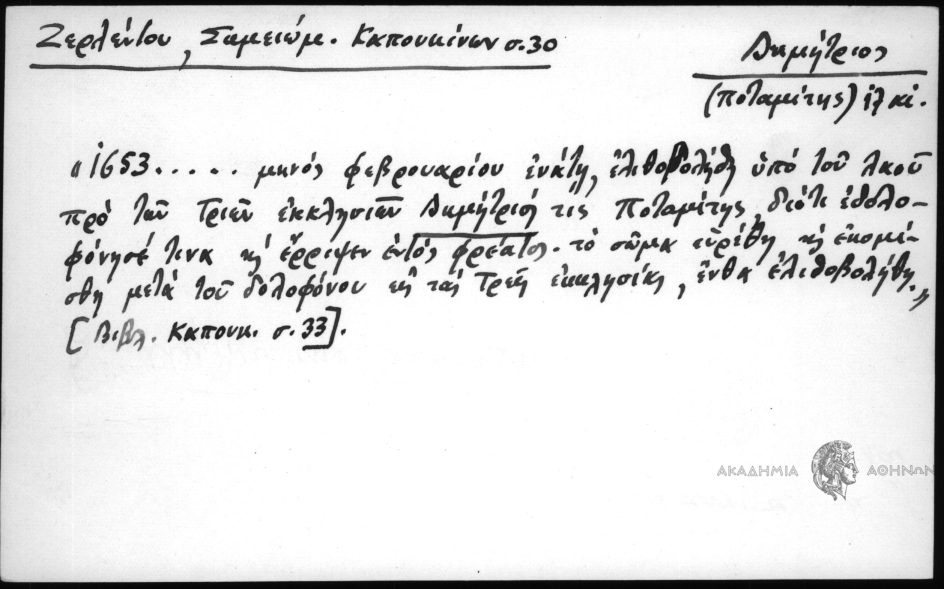 Ζερλέντου, Σημειώμ. Καπουκίνων σ.30
Δημήτριος
(Ποταμίτης)
"1653..... μηνός φεβρουαρίου ἐνάτη, ἐλιθοβολήθη ὑπό τοῦ λαοῦ
πρό τῶν Τριῶν ἐκκλησιῶν Δημήτριός τις Ποταμίτης, διότι ἐδολο-
φόνησέ τινα κή ἔρριψεν ἐντός φρέατος. τό σῶμα εὑρέθη κή ἐκομί-
σθη μετά τοῦ δολοφόνου εἰς τάς Τρεῖς ἐκκλησίας, ἔνθα ἐλιθοβολήθη."
[Βιβλ. Καπουκ. σ. 33].
ΑΚΑΔΗΜΙΑ ΑΘΗΝΩΝ